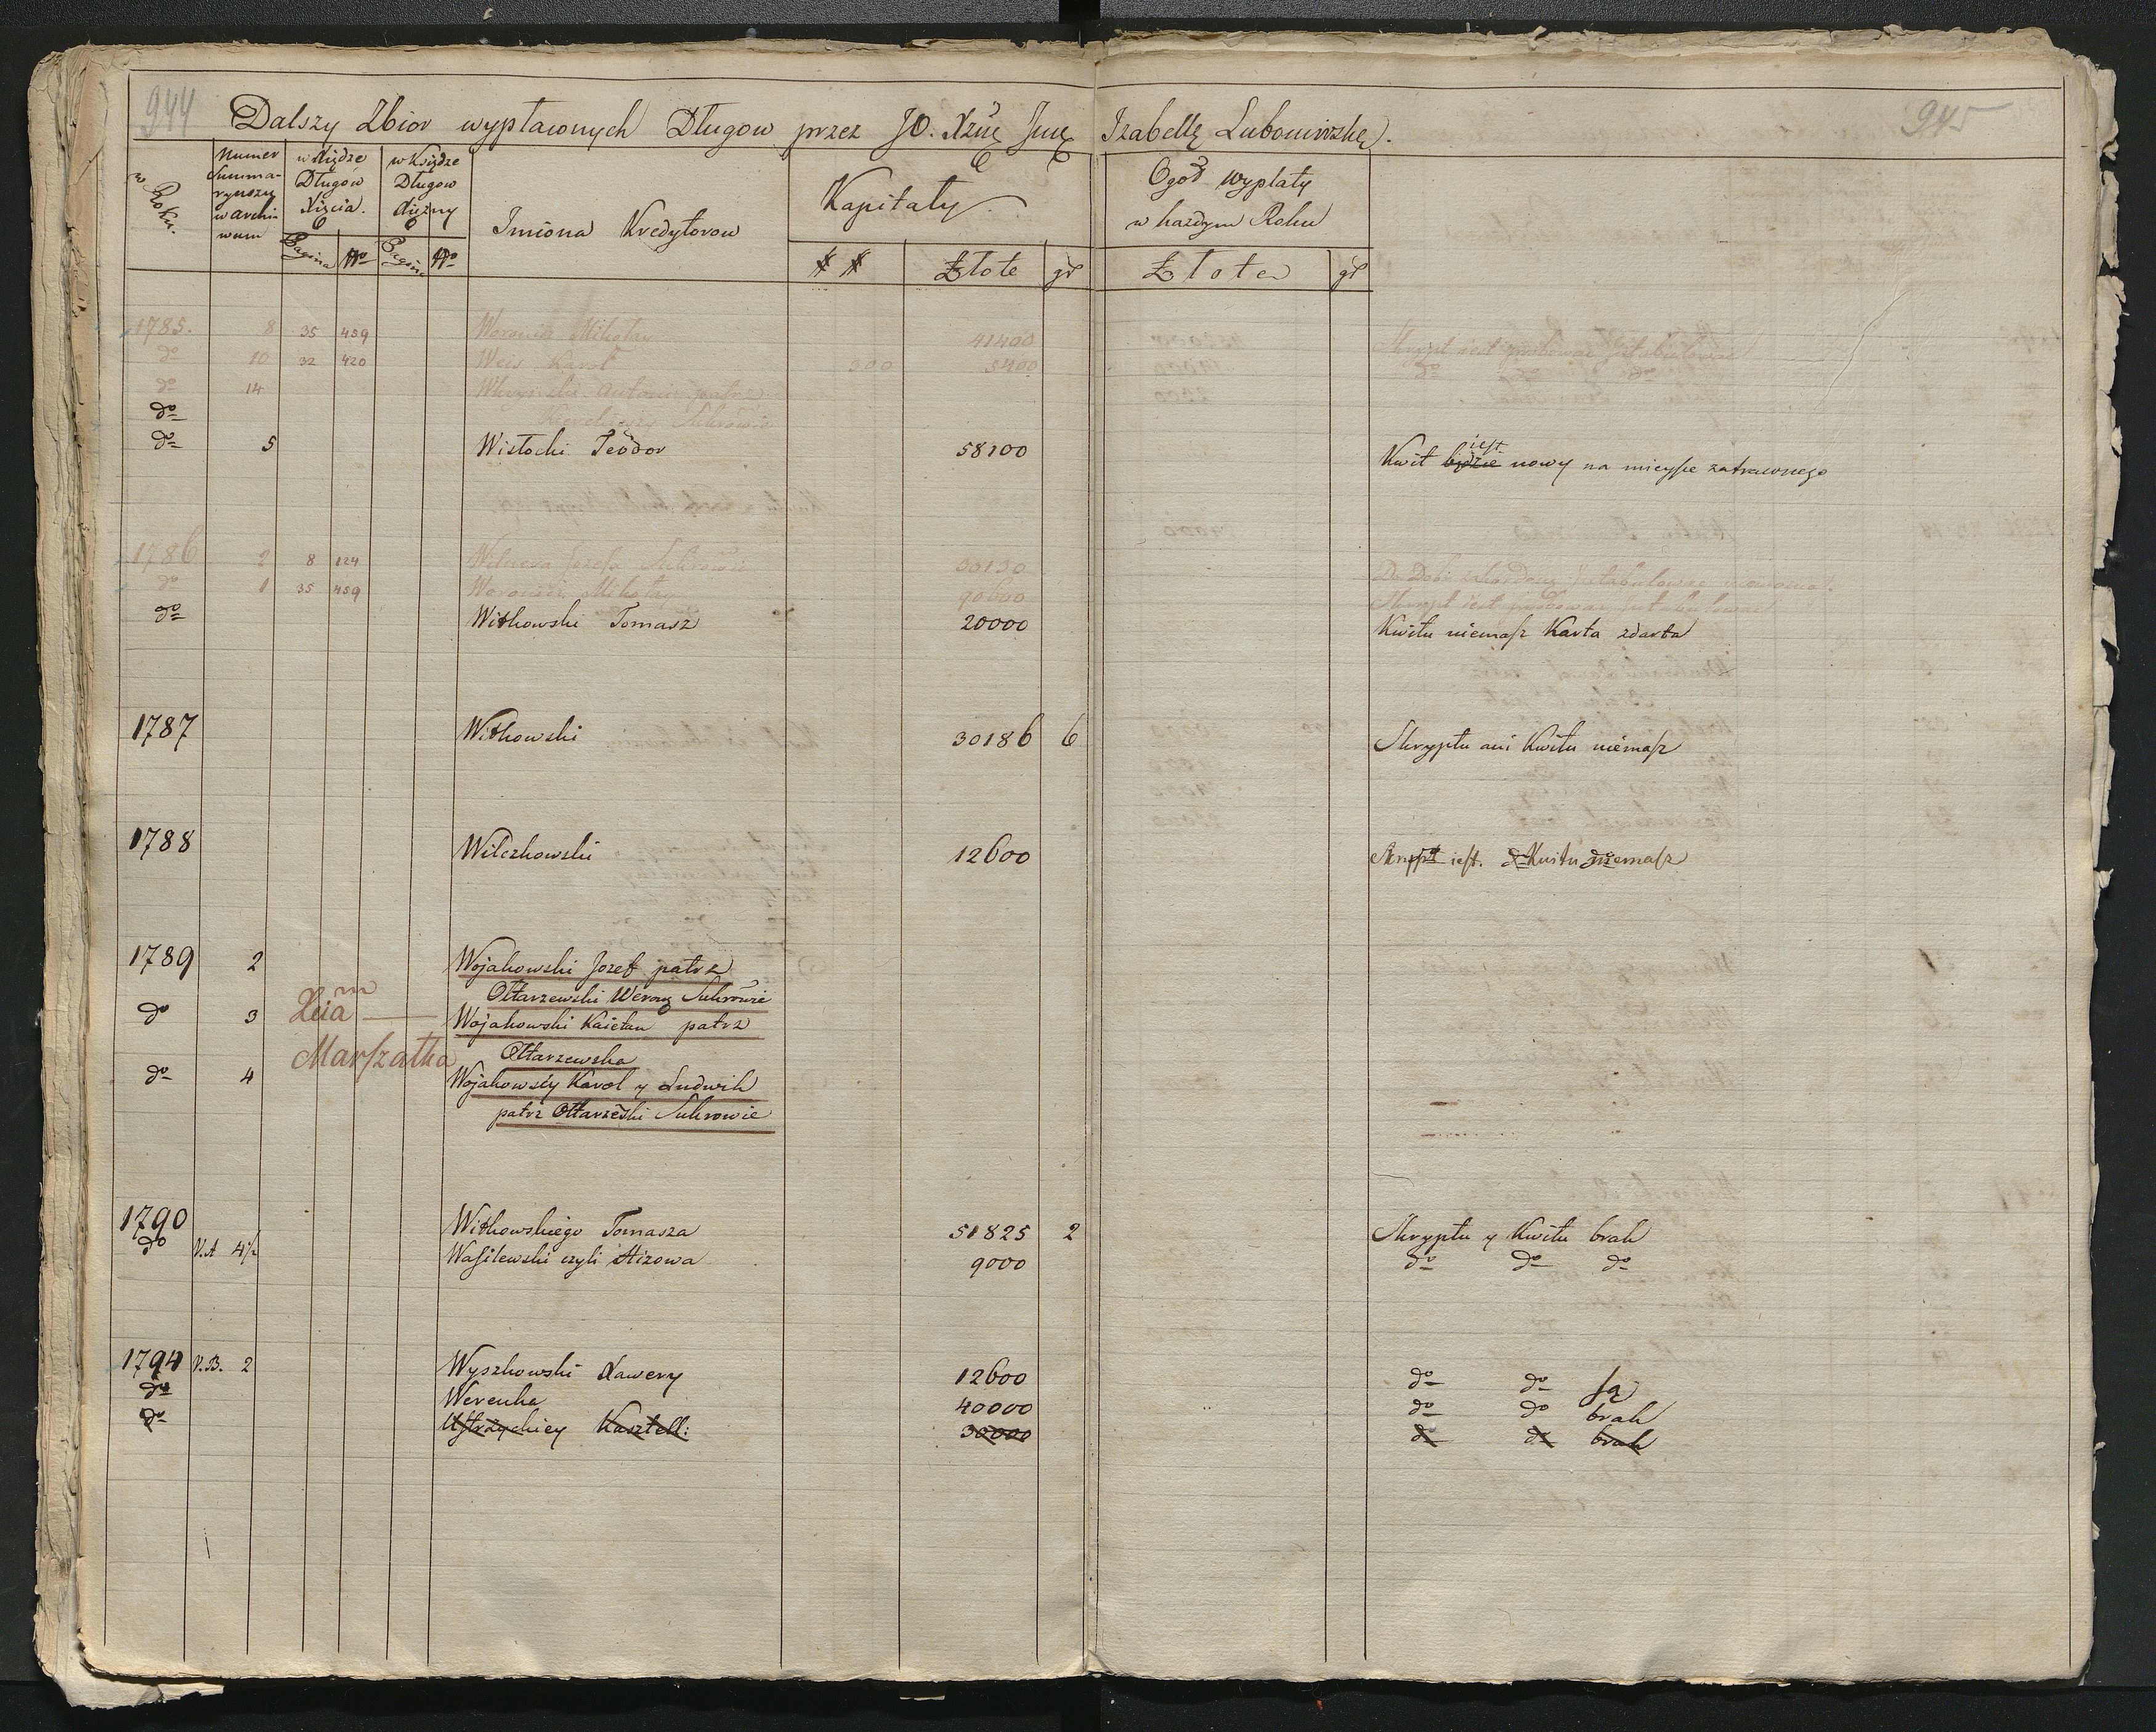 944
945
Dalszy Zbior wypłaconych Długow przez JO. Xżnę Jmę Izabellę Lubomirską.
w Roku.
Numer Summaryuszu w Archiwum
w Xiędze Długów Xięcia.
w Xiędze Długow Xiężny
Imiona Kredytorow
Kapitały
Ogoł wypłaty
w każdym Roku
Pagina No Pagina No
## Złote gr Złote gr
1785. 8 35 459 Woronicz Mikołay 41400 Skrypt iest
do 10 32 420 Weis Karol 300 5400 do do do
do 14 Antoni patrz
do Sukcessorowie
do 5 Wisłocki Teodor 58100 Kwit będzie iest nowy na mieysce zatraconego
1786 2 8 124 Józefa Sukcessorowie 30130
do 1 35 459 Woronicz Mikołay 90600 Skrypt iest
do Witkowski Tomasz 20000 Kwitu niemasz Karta zdarta
1787 Witkowski 30186 6 Skryptu ani Kwitu niemasz
1788 Wilczkowski 12600 Skrypt iest. Kwitu niemasz
1789 2 Wojakowski Jozef patrz
Ołtarzewski Sukcrowie
do 3 Wojakowski Kaietan patrz
Marszałka
Ołtarzewska
do 4 Wojakowscy Karol y Ludwik
patrz Ołtarzewski Sukcrowie
1790 Witkowskiego Tomasza 51825 2 Skryptu y Kwitu brak
do V.A 4 1/2 Wasilewski czyli Hizowa 9000 do do do
1794 V.B. 2 Wyszkowski Xawery 12600 do do są
do Werenka 40000 do do brak
do Ustrzyckiey Kasztell: 30000 do do brak